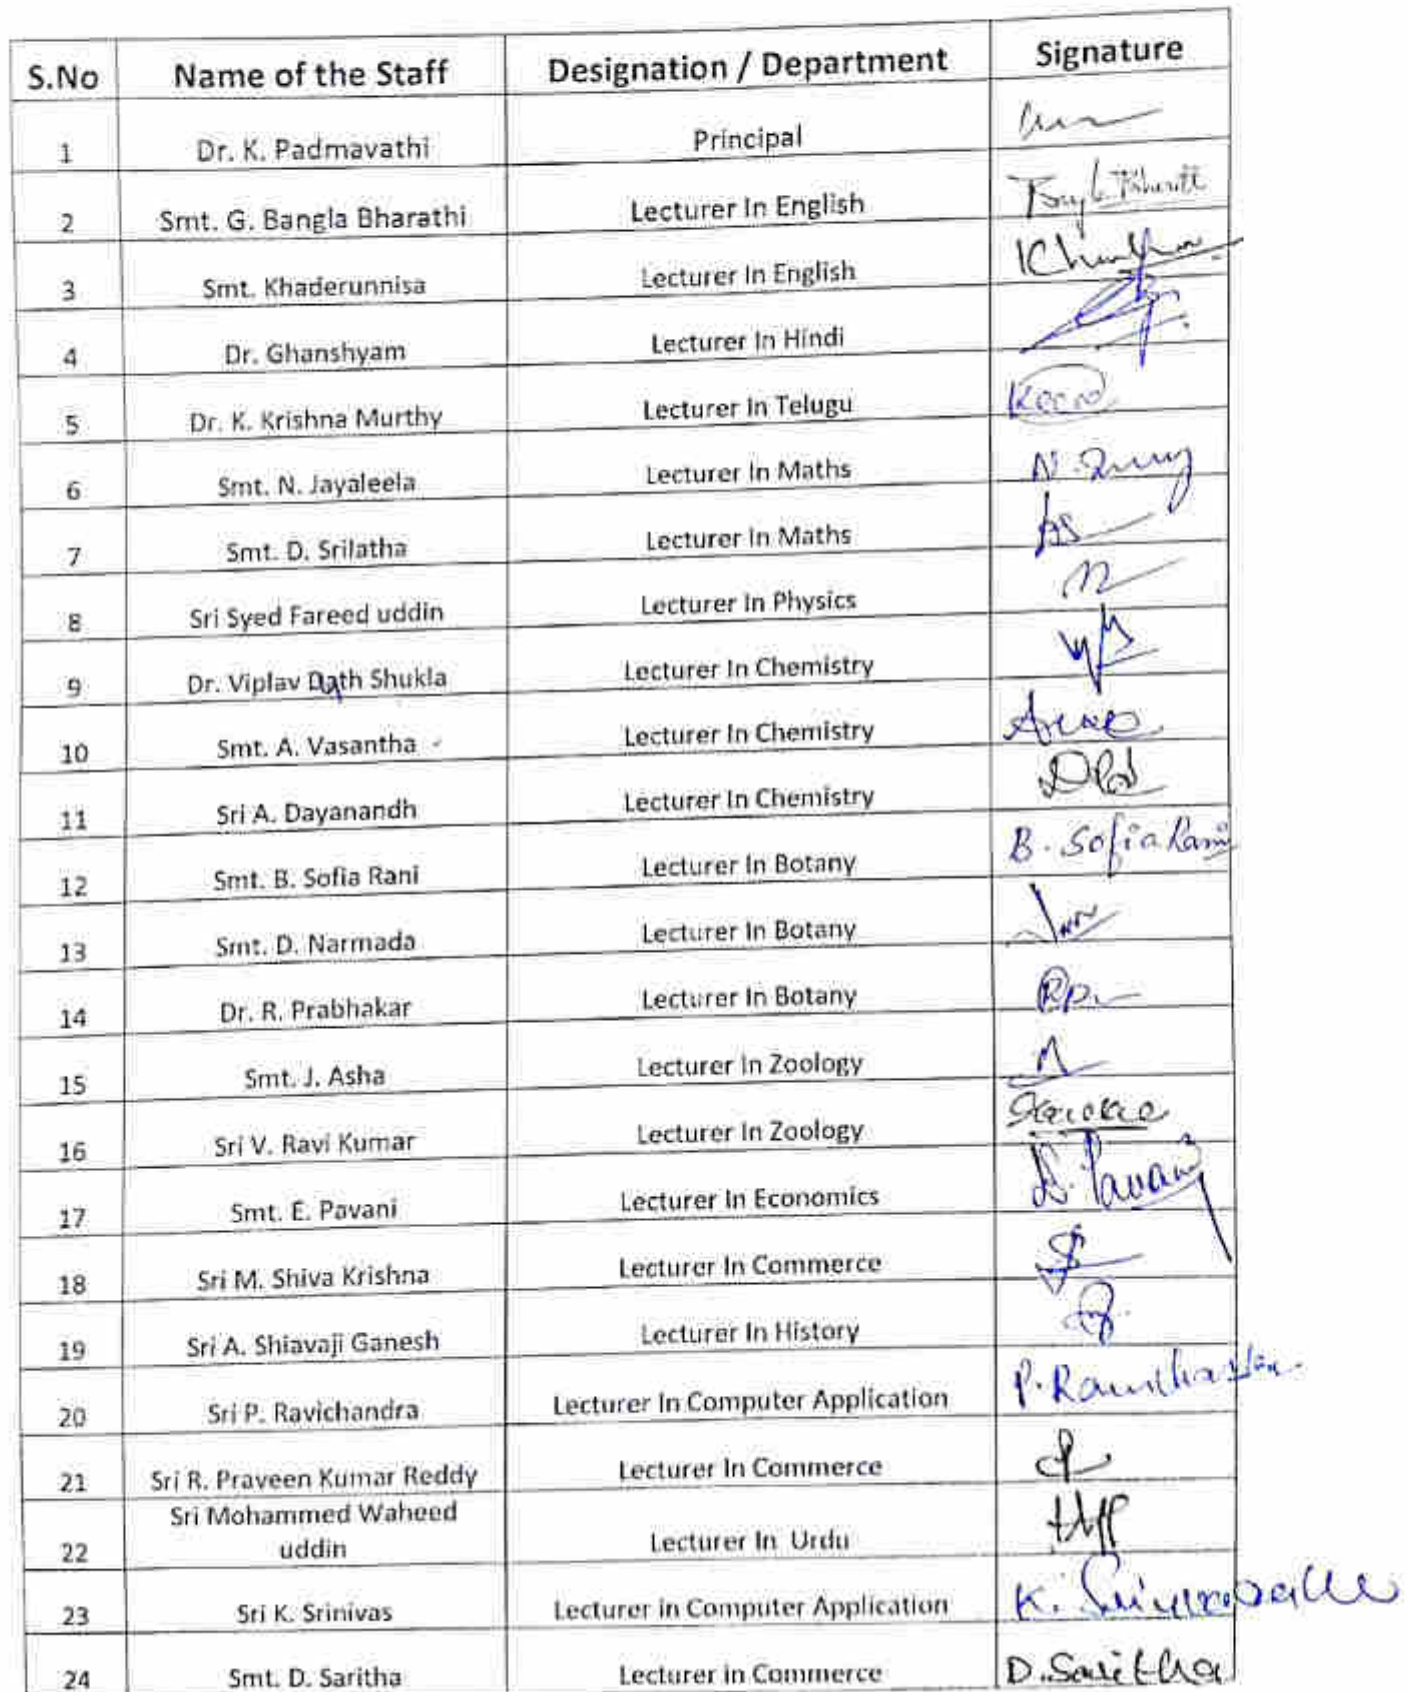 S.No Name of the Staff Designation / Department Signature
1 Dr. K. Padmavathi Principal
2 Smt. G. Bangla Bharathi Lecturer In English
3 Smt. Khaderunnisa Lecturer In English
4 Dr. Ghanshyam Lecturer In Hindi
5 Dr. K. Krishna Murthy Lecturer In Telugu
6 Smt. N. Jayaleela Lecturer In Maths N.
7 Smt. D. Srilatha Lecturer In Maths
8 Sri Syed Fareed uddin Lecturer In Physics
9 Dr. Viplav Shukla Lecturer In Chemistry
10 Smt. A. Vasantha Lecturer In Chemistry
11 Sri A. Dayanandh Lecturer In Chemistry
12 Smt. B. Sofia Rani Lecturer In Botany B. Sofia Rani
13 Smt. D. Narmada Lecturer In Botany
14 Dr. R. Prabhakar Lecturer In Botany
15 Smt. J. Asha Lecturer In Zoology
16 Sri V. Ravi Kumar Lecturer In Zoology
17 Smt. E. Pavani Lecturer In Economics Pavani
18 Sri M. Shiva Krishna Lecturer In Commerce
19 Sri A. Shiavaji Ganesh Lecturer In History
20 Sri P. Ravichandra Lecturer In Computer Application P.
21 Sri R. Praveen Kumar Reddy Lecturer In Commerce
Sri Mohammed Waheed
22 uddin Lecturer In Urdu
23 Sri K. Srinivas Lecturer in Computer Application K.
24 Smt. D. Saritha Lecturer in Commerce D. Saritha